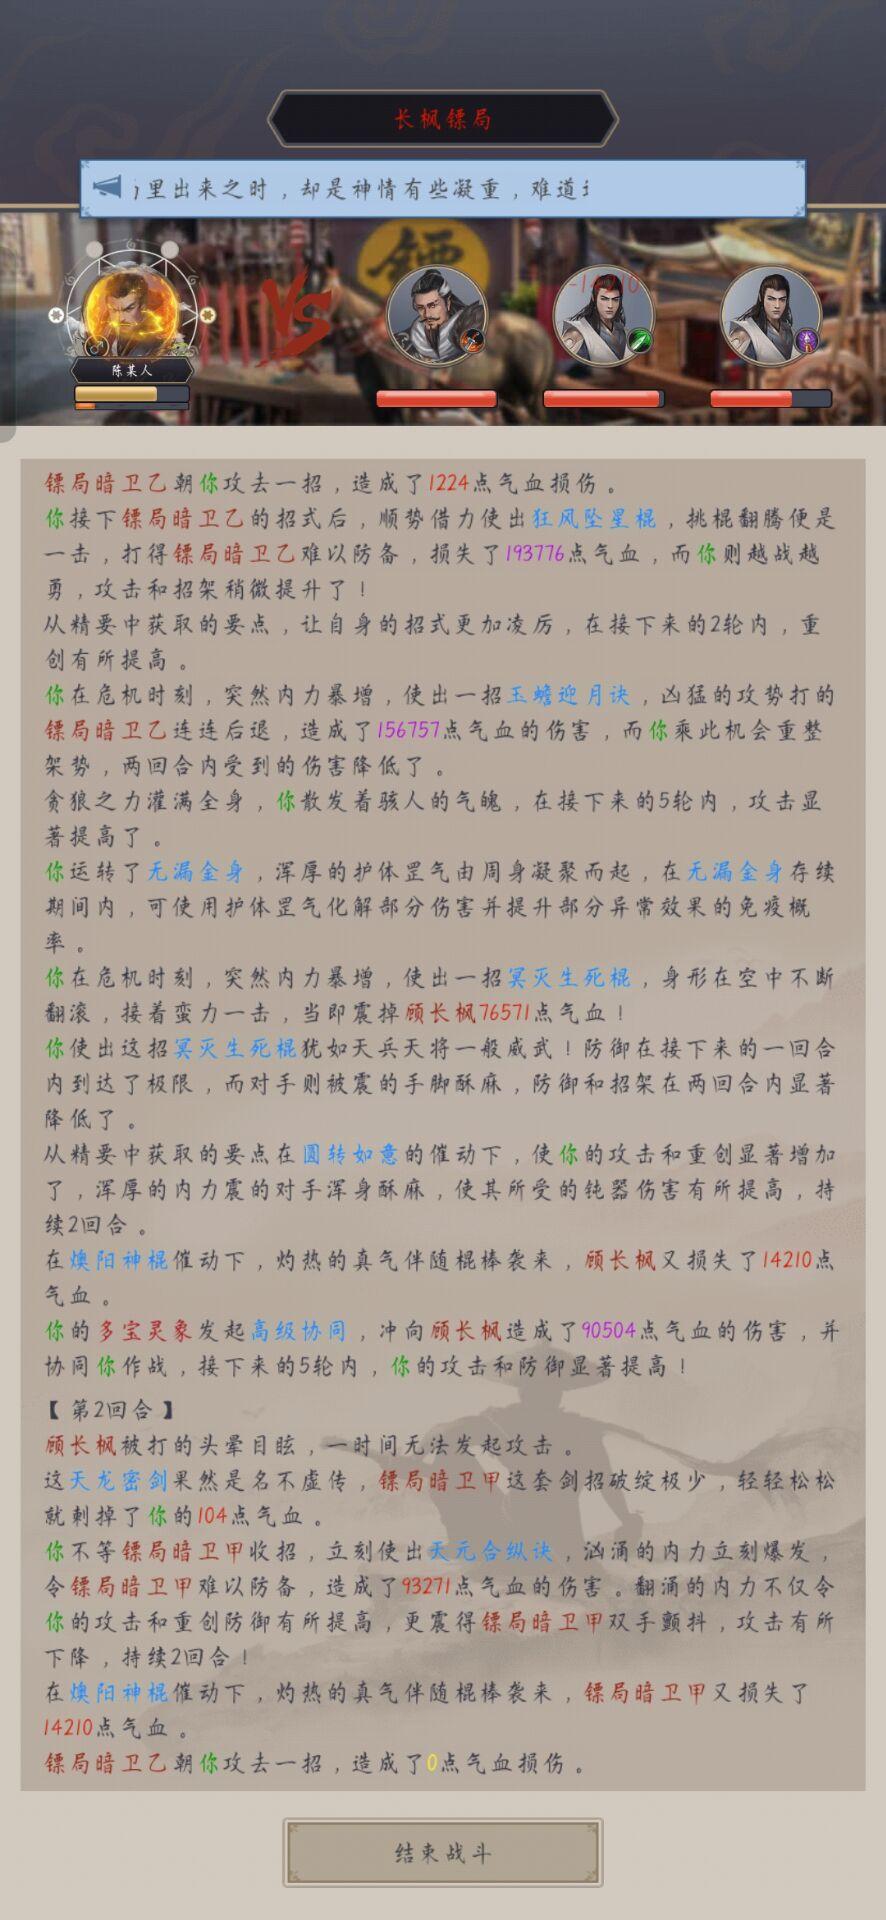 长枫镖局
里出来之时，却是神情有些凝重，难道
镖
VS
-14210
陈某人
镖局暗卫乙朝你攻去一招，造成了1224点气血损伤。
你接下镖局暗卫乙的招式后，顺势借力使出狂风坠星棍，挑棍翻腾便是
一击，打得镖局暗卫乙难以防备，损失了193776点气血，而你则越战越
勇，攻击和招架稍微提升了！
从精要中获取的要点，让自身的招式更加凌厉，在接下来的2轮内，重
创有所提高。
你在危机时刻，突然内力暴增，使出一招玉蟾迎月诀，凶猛的攻势打的
镖局暗卫乙连连后退，造成了156757点气血的伤害，而你乘此机会重整
架势，两回合内受到的伤害降低了。
贪狼之力灌满全身，你散发着骇人的气魄，在接下来的5轮内，攻击显
著提高了。
你运转了无漏金身，浑厚的护体罡气由周身凝聚而起，在无漏金身存续
期间内，可使用护体罡气化解部分伤害并提升部分异常效果的免疫概
率。
你在危机时刻，突然内力暴增，使出一招冥灭生死棍，身形在空中不断
翻滚，接着蛮力一击，当即震掉顾长枫76571点气血！
你使出这招冥灭生死棍犹如天兵天将一般威武！防御在接下来的一回合
内到达了极限，而对手则被震的手脚酥麻，防御和招架在两回合内显著
降低了。
从精要中获取的要点在圆转如意的催动下，使你的攻击和重创显著增加
了，浑厚的内力震的对手浑身酥麻，使其所受的钝器伤害有所提高，持
续2回合。
在燠阳神棍催动下，灼热的真气伴随棍棒袭来，顾长枫又损失了14210点
气血。
你的多宝灵象发起高级协同，冲向顾长枫造成了90504点气血的伤害，并
协同你作战，接下来的5轮内，你的攻击和防御显著提高！
【第2回合】
顾长枫被打的头晕目眩，一时间无法发起攻击。
这天龙密剑果然是名不虚传，镖局暗卫甲这套剑招破绽极少，轻轻松松
就刺掉了你的104点气血。
你不等镖局暗卫甲收招，立刻使出天元合纵诀，汹涌的内力立刻爆发，
令镖局暗卫甲难以防备，造成了93271点气血的伤害。翻涌的内力不仅令
你的攻击和重创防御有所提高，更震得镖局暗卫甲双手颤抖，攻击有所
下降，持续2回合！
在燠阳神棍催动下，灼热的真气伴随棍棒袭来，镖局暗卫甲又损失了
14210点气血。
镖局暗卫乙朝你攻去一招，造成了0点气血损伤。
结束战斗